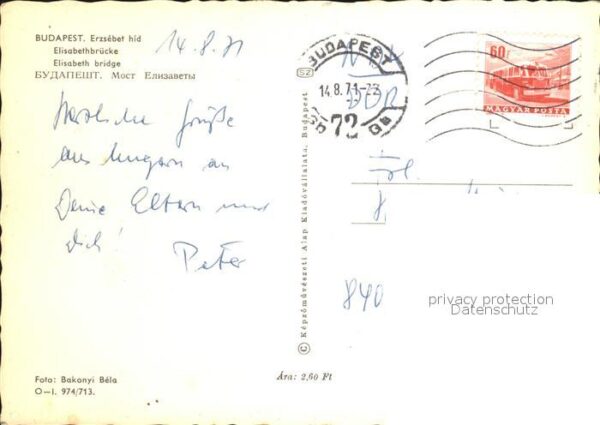 BUDAPEST. Erzsébet híd
Elisabethbrücke
Elisabeth bridge
БУДАПЕШТ. Мост Елизаветы
14.8.71
Herzliche Grüße
aus Ungarn an
Deine Eltern und
Dich!
Peter
BUDAPEST
14.8.71-23
72
DDR
60f
MAGYAR POSTA
840
privacy protection
Datenschutz
© Képzőművészeti Alap Kiadóvállalata, Budapest
Foto: Bakonyi Béla
O—I. 974/713.
Ára: 2,60 Ft